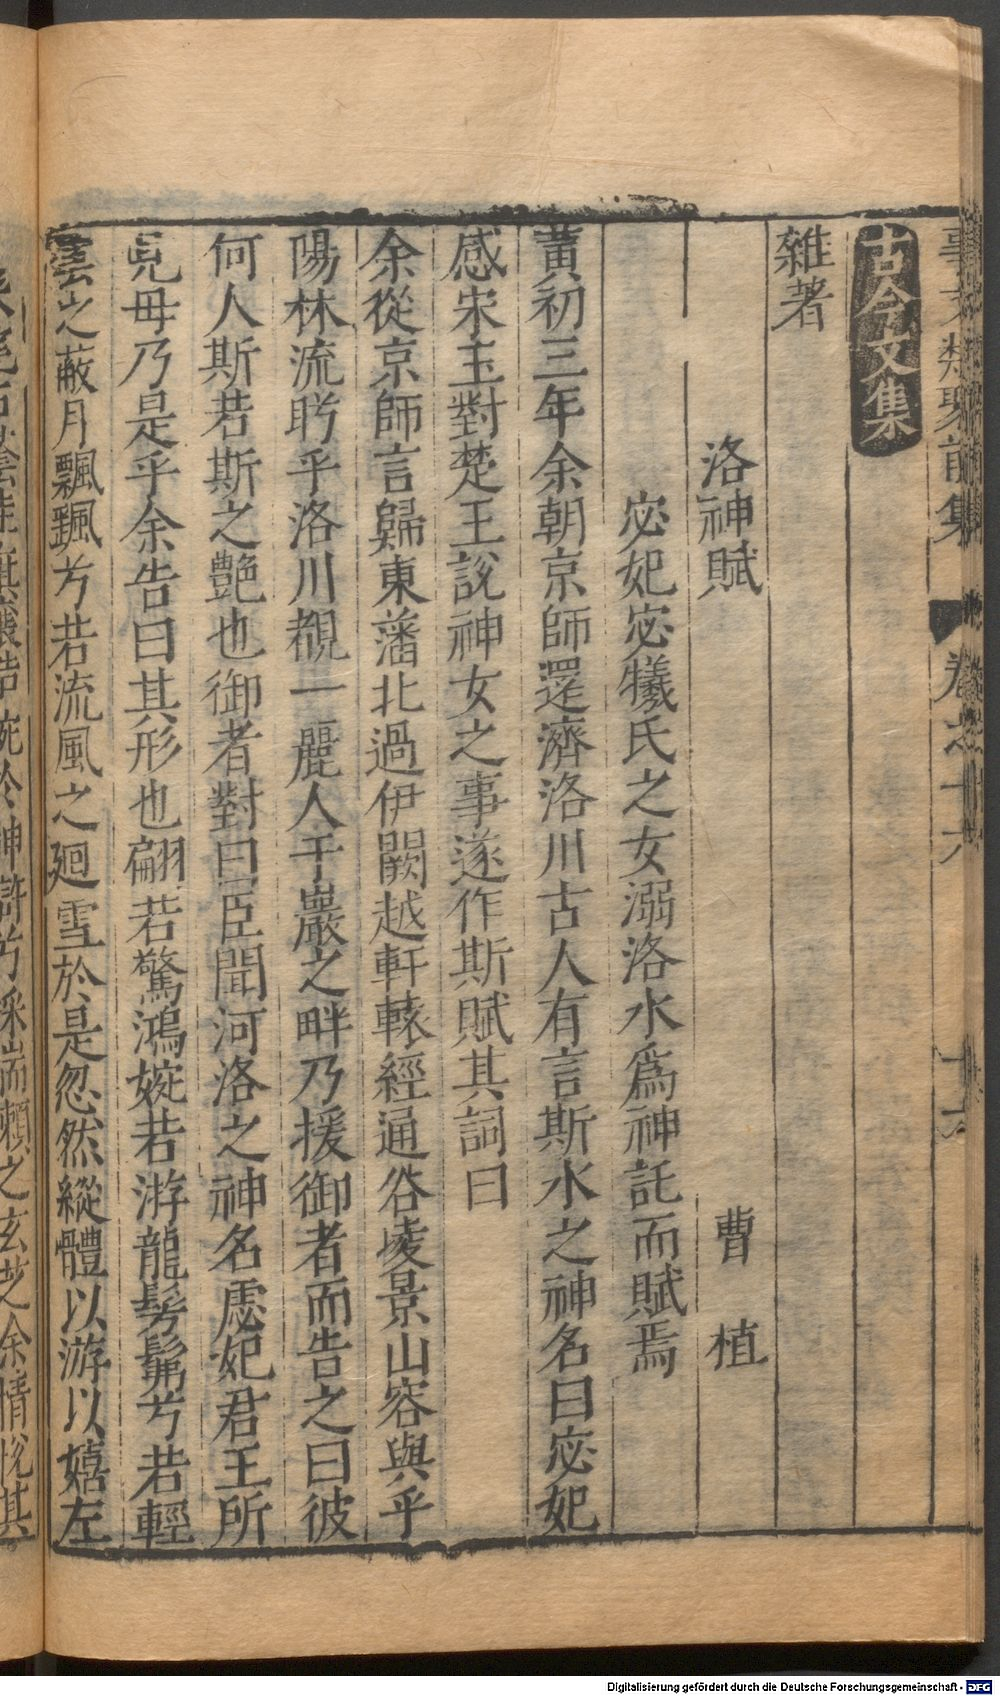 事文類聚前集 卷之十六 十六
古今文集
雜著
洛神賦 曹植
宓妃宓犧氏之女溺洛水爲神託而賦焉
黃初三年余朝京師還濟洛川古人有言斯水之神名曰宓妃
感宋玉對楚王說神女之事遂作斯賦其詞曰
余從京師言歸東藩北過伊闕越軒轅經通谷凌景山容與乎
陽林流眄乎洛川覩一麗人于巖之畔乃援御者而告之曰彼
何人斯若斯之艷也御者對曰臣聞河洛之神名虙妃君王所
見毋乃是乎余告曰其形也翩若驚鴻婉若游龍髣髴兮若輕
雲之蔽月飄飄兮若流風之廻雪於是忽然縱體以游以嬉左
倚采旄右蔭桂旗攘皓腕於神滸兮采湍瀨之玄芝余情悅其
Digitalisierung gefördert durch die Deutsche Forschungsgemeinschaft - DFG